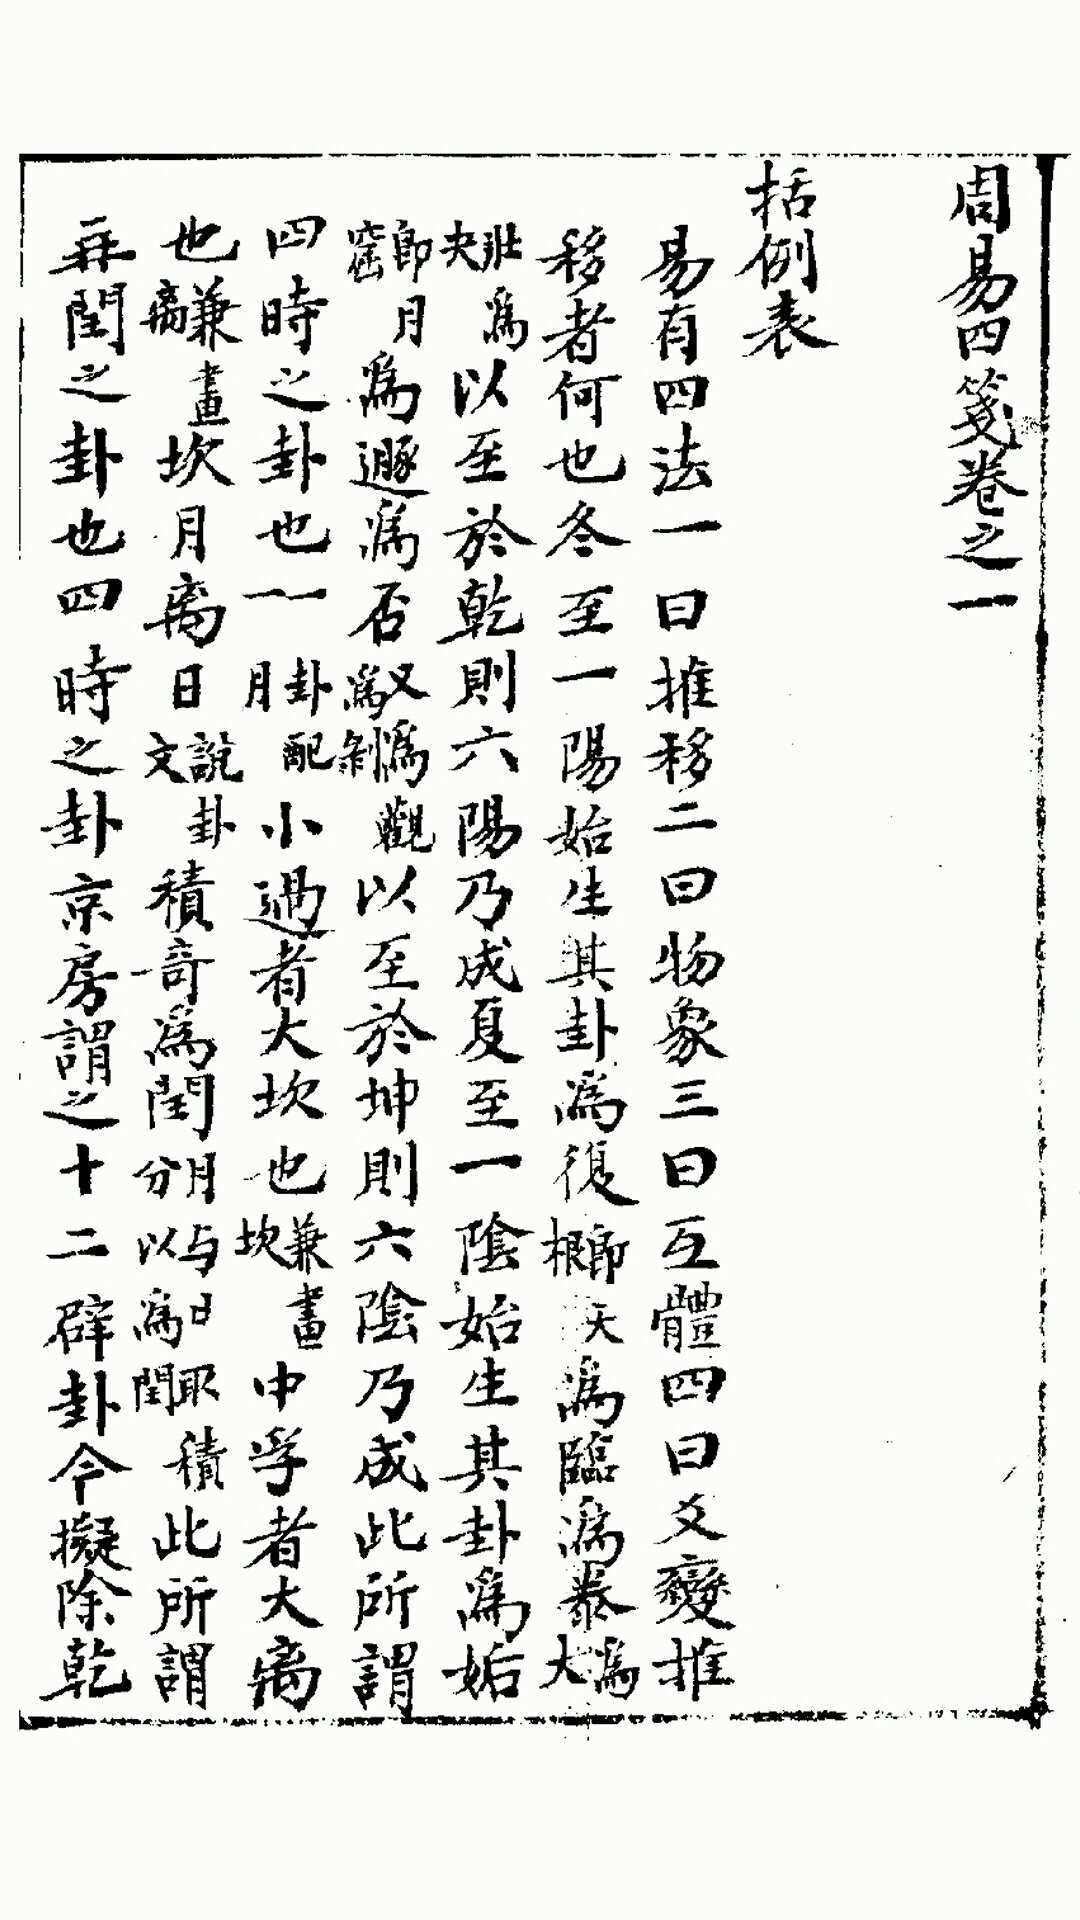 周易四箋卷之一
括例表
易有四法一曰推移二曰物象三曰互體四曰爻變推
移者何也冬至一陽始生其卦爲復即天根爲臨爲泰爲大
壯爲夬以至於乾則六陽乃成夏至一陰始生其卦爲姤
即月窟爲遯爲否又爲觀爲剝以至於坤則六陰乃成此所謂
四時之卦也一一卦配月小過者大坎也兼畫坎中孚者大离
也兼畫离坎月离日說卦文積奇爲閏月与日取積分以爲閏此所謂
再閏之卦也四時之卦京房謂之十二辟卦今擬除乾